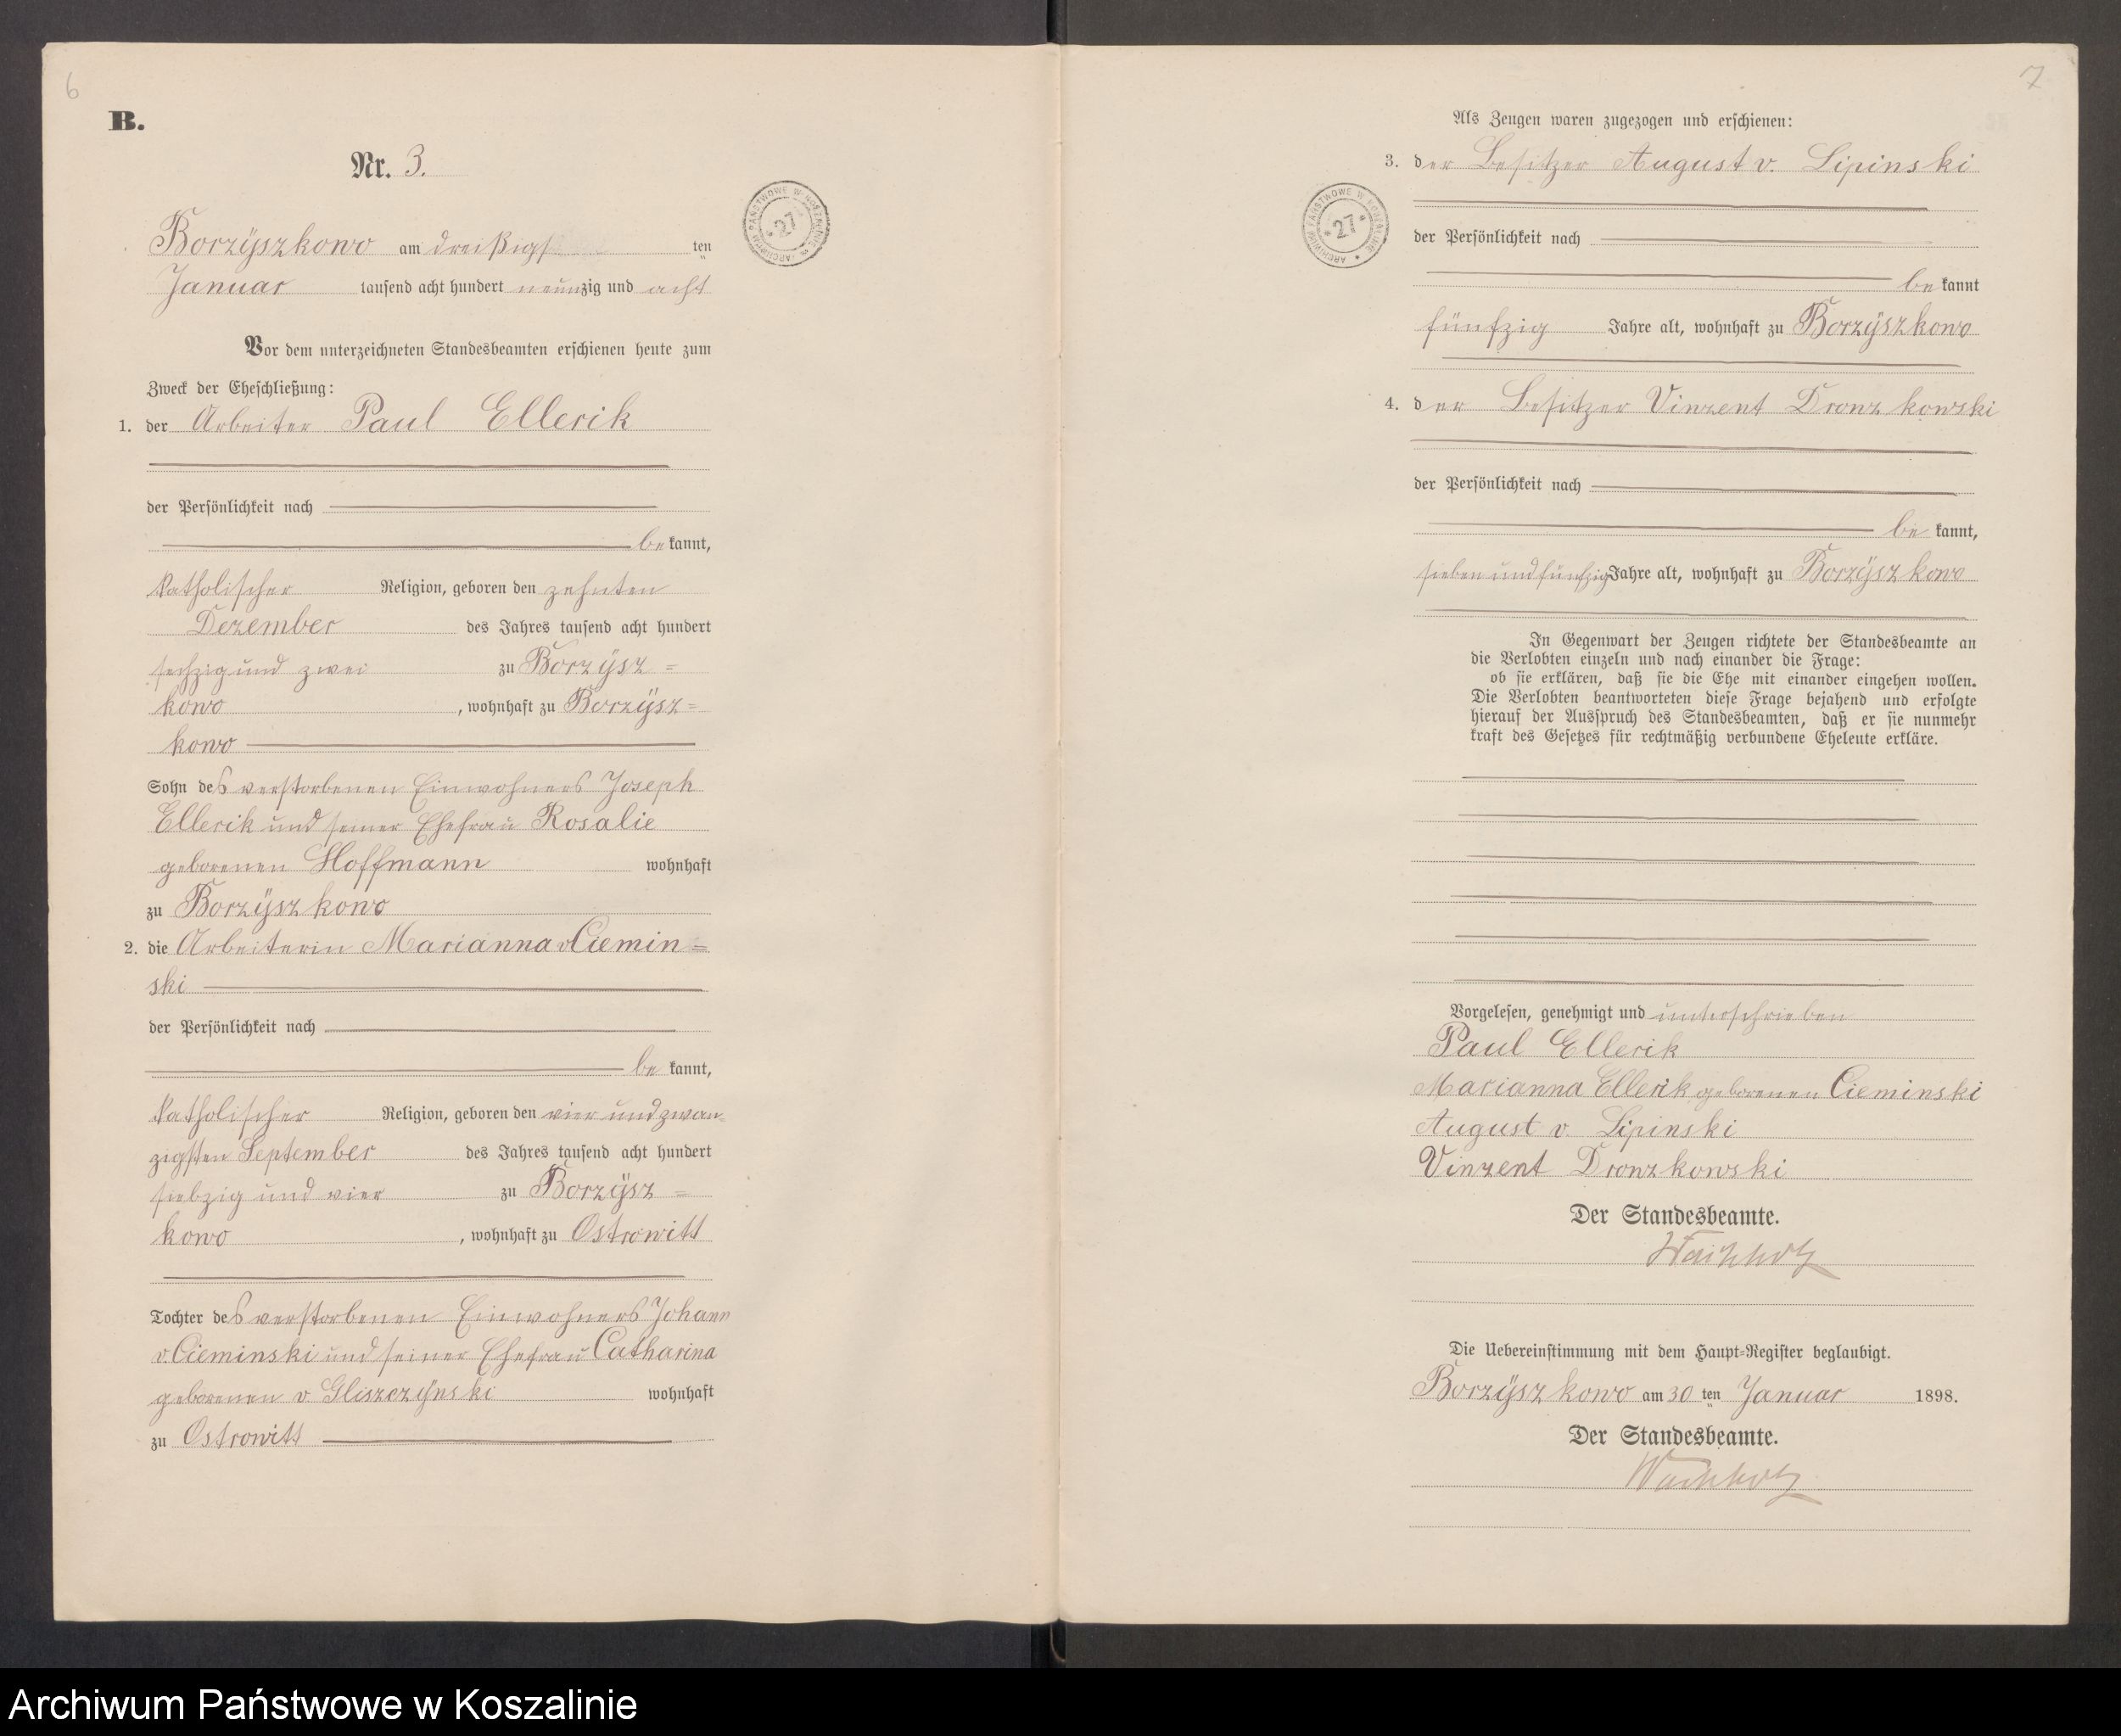 6
B.
Nr. 3.
ARCHIWUM PAŃSTWOWE W KOSZALINIE * 27 *
Borzÿszkowo am dreißigsten
Januar tausend acht hundert neunzig und acht
Vor dem unterzeichneten Standesbeamten erschienen heute zum
Zweck der Eheschließung:
1. der Arbeiter Paul Ellerik
der Persönlichkeit nach
be kannt,
katholischer Religion, geboren den zehnten
Dezember des Jahres tausend acht hundert
sechzig und zwei zu Borzÿsz=
kowo, wohnhaft zu Borzÿsz=
kowo
Sohn des verstorbenen Einwohners Joseph
Ellerik und seiner Ehefrau Rosalie
geborenen Hoffmann wohnhaft
zu Borzÿszkowo
2. die Arbeiterin Marianna v Ciemin=
ski
der Persönlichkeit nach
be kannt,
katholischer Religion, geboren den vier und zwan=
zigsten September des Jahres tausend acht hundert
siebzig und vier zu Borzÿsz=
kowo, wohnhaft zu Ostrowitt
Tochter des verstorbenen Einwohners Johann
v. Cieminski und seiner Ehefrau Catharina
geborenen v. Gliszczÿnski wohnhaft
zu Ostrowitt
7
Als Zeugen waren zugezogen und erschienen:
ARCHIWUM PAŃSTWOWE W KOSZALINIE * 27 *
3. der Besitzer August v. Lipinski
der Persönlichkeit nach
be kannt
fünfzig Jahre alt, wohnhaft zu Borzÿszkowo
4. der Besitzer Vinzent Dronzkowski
der Persönlichkeit nach
be kannt,
sieben und fünfzig Jahre alt, wohnhaft zu Borzÿszkowo
In Gegenwart der Zeugen richtete der Standesbeamte an
die Verlobten einzeln und nach einander die Frage:
ob sie erklären, daß sie die Ehe mit einander eingehen wollen.
Die Verlobten beantworteten diese Frage bejahend und erfolgte
hierauf der Ausspruch des Standesbeamten, daß er sie nunmehr
kraft des Gesetzes für rechtmäßig verbundene Eheleute erkläre.
Vorgelesen, genehmigt und unterschrieben
Paul Ellerik
Marianna Ellerik geborenen Cieminski
August v. Lipinski
Vinzent Dronzkowski
Der Standesbeamte.
Die Uebereinstimmung mit dem Haupt=Register beglaubigt.
Borzÿszkowo am 30 ten Januar 1898.
Der Standesbeamte.
Archiwum Państwowe w Koszalinie